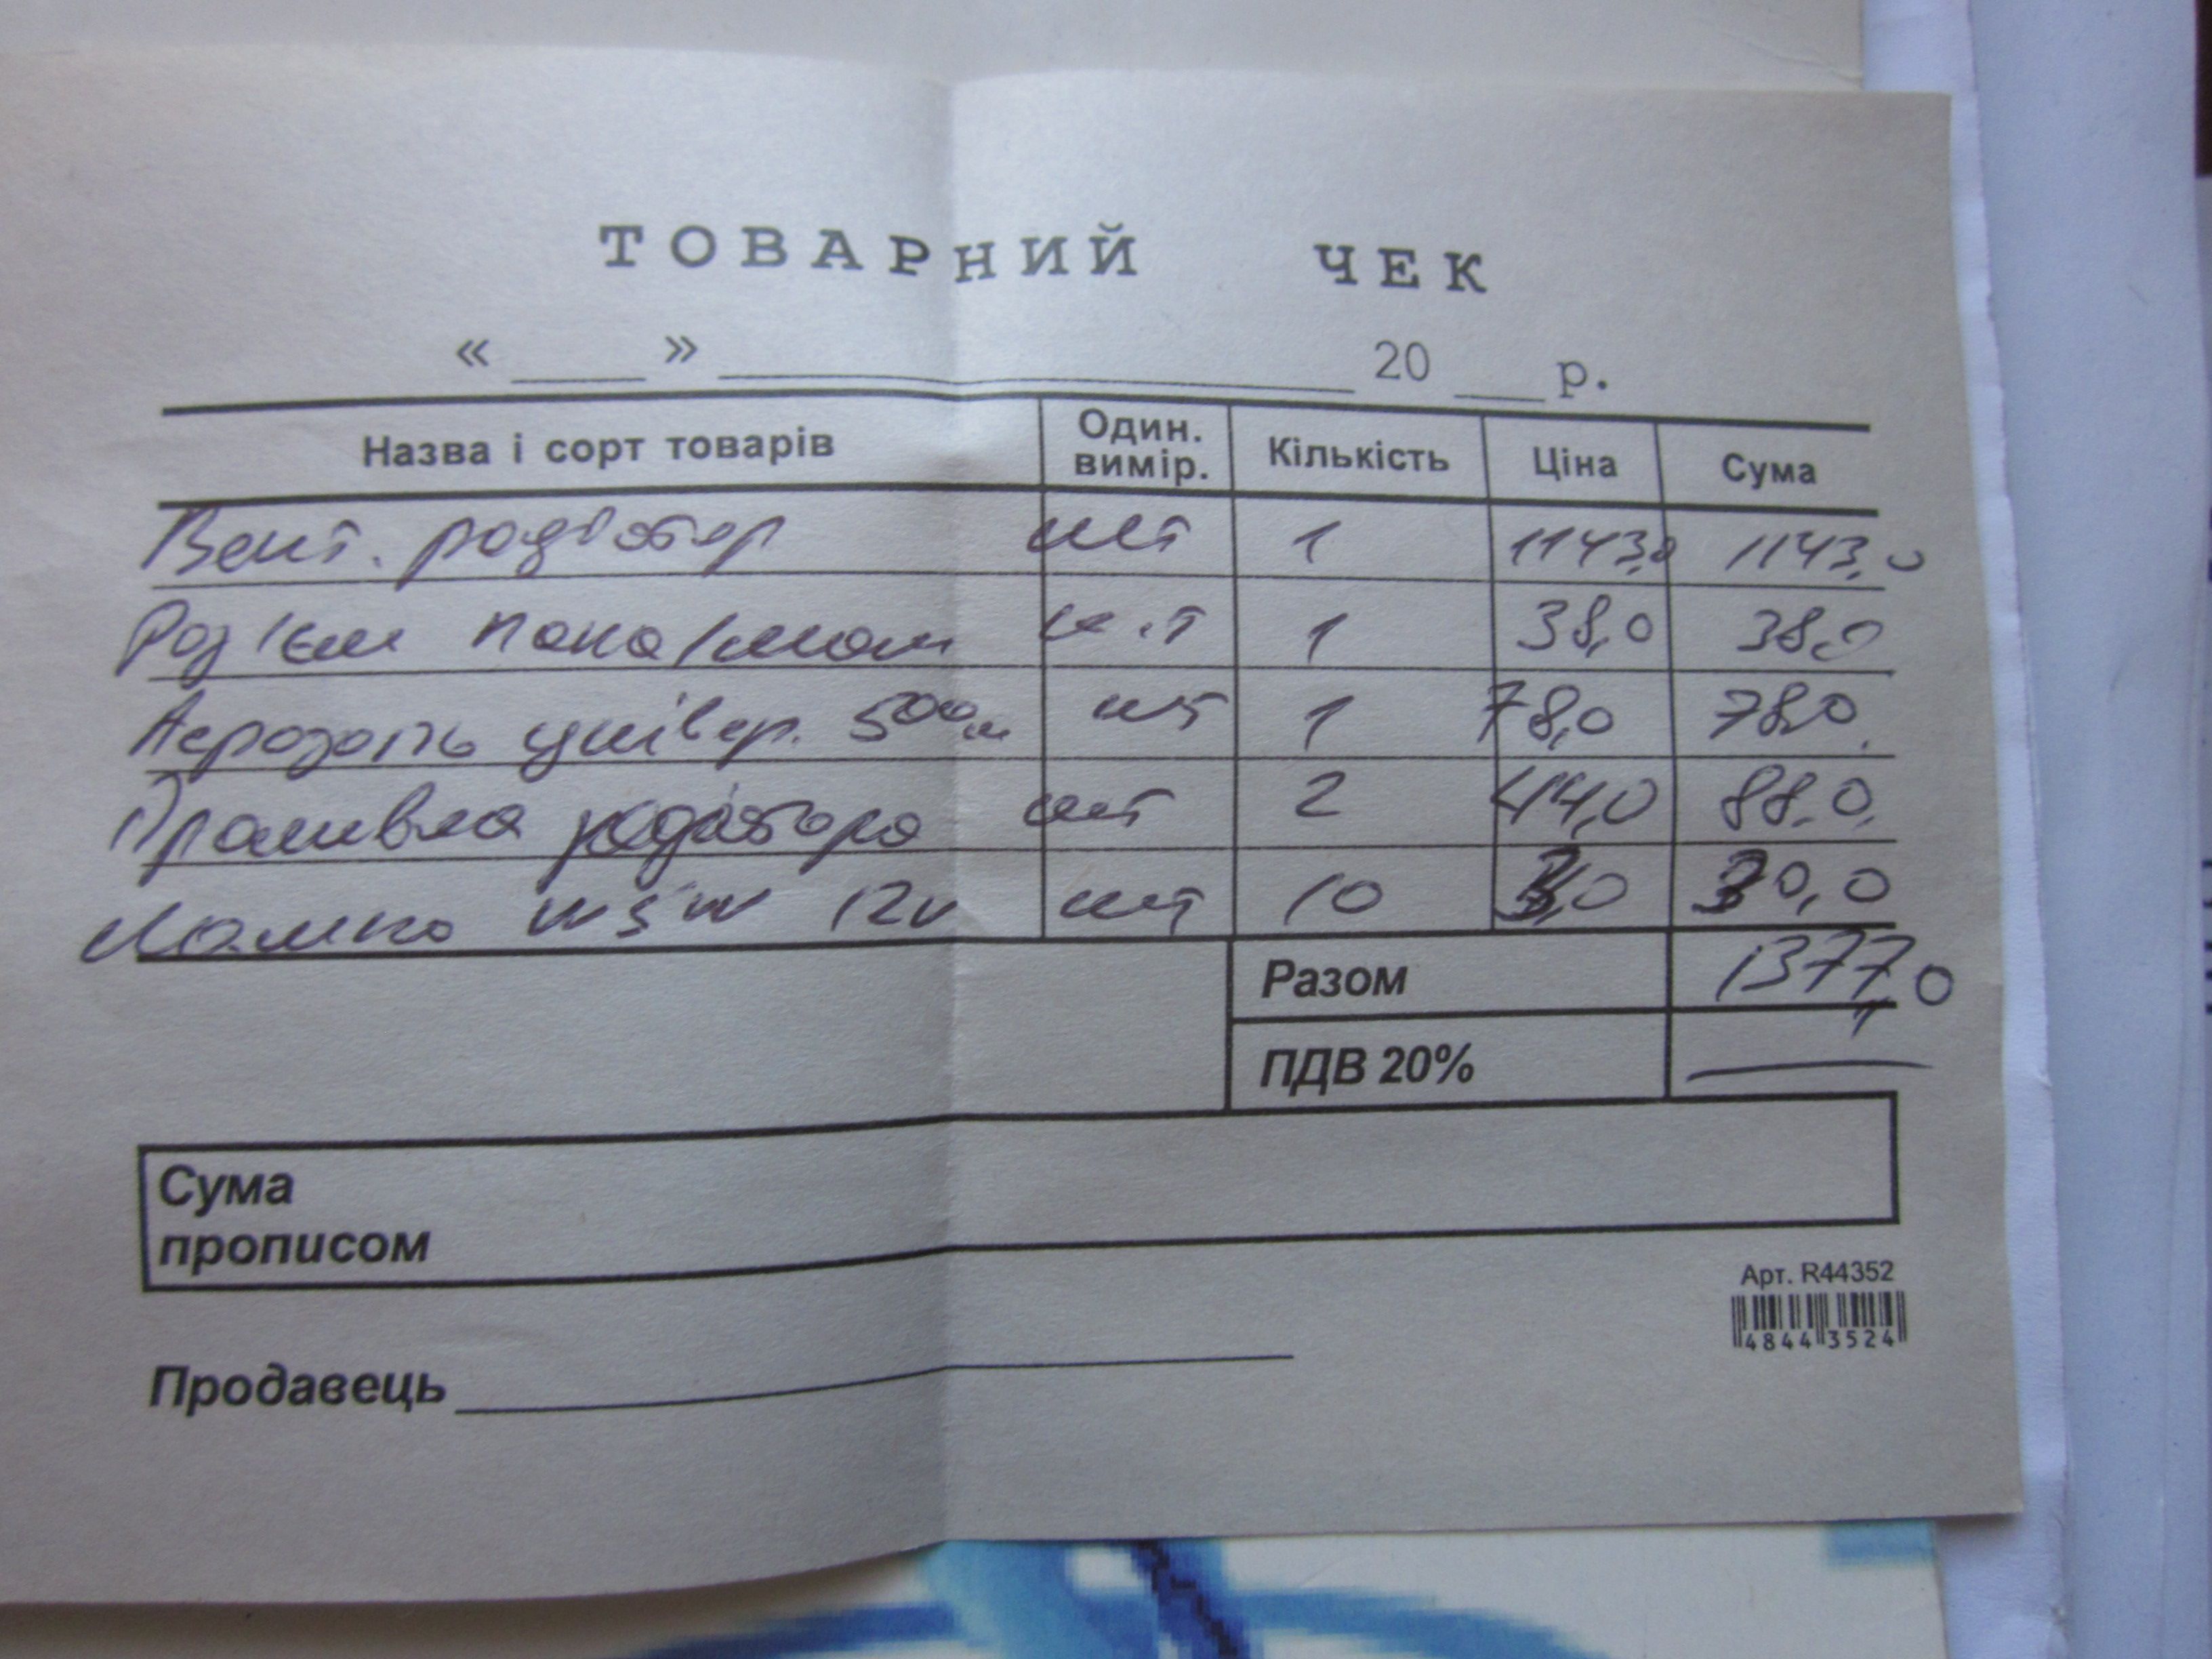 ТОВАРНИЙ ЧЕК
« ____ » ____________________ 20 ___ р.
Назва і сорт товарів Один. вимір. Кількість Ціна Сума
Вент. радіатор шт 1 1143,0 1143,0
Роз'єм шт 1 38,0 38,0
Аерозоль універ. 500 шт 1 78,0 78,0
Промивка радіатора шт 2 44,0 88,0
Лампа W5W 12v шт 10 3,0 30,0
Разом 1377,0
ПДВ 20% —
Сума
прописом
Арт. R44352
48443524
Продавець